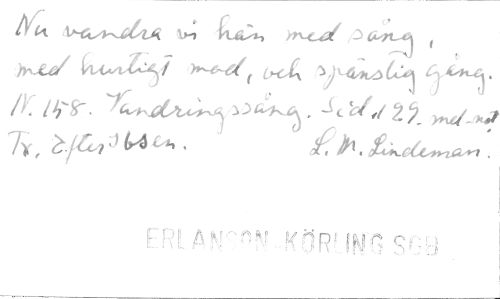 Nu vandra vi hän med sång,
med hurtigt mod, och spänstig gång.
N. 158. Vandringssång. Sid. 129. mel-not
Tr. Efter Ibsen. L. M. Lindeman.
ERLANSON-KÖRLING SGB